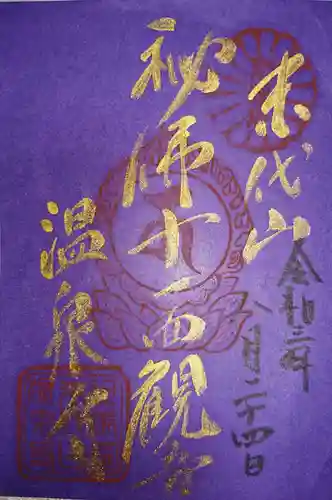 末代山
令和三年
八月二十四日
祕佛十一面觀音
温泉寺